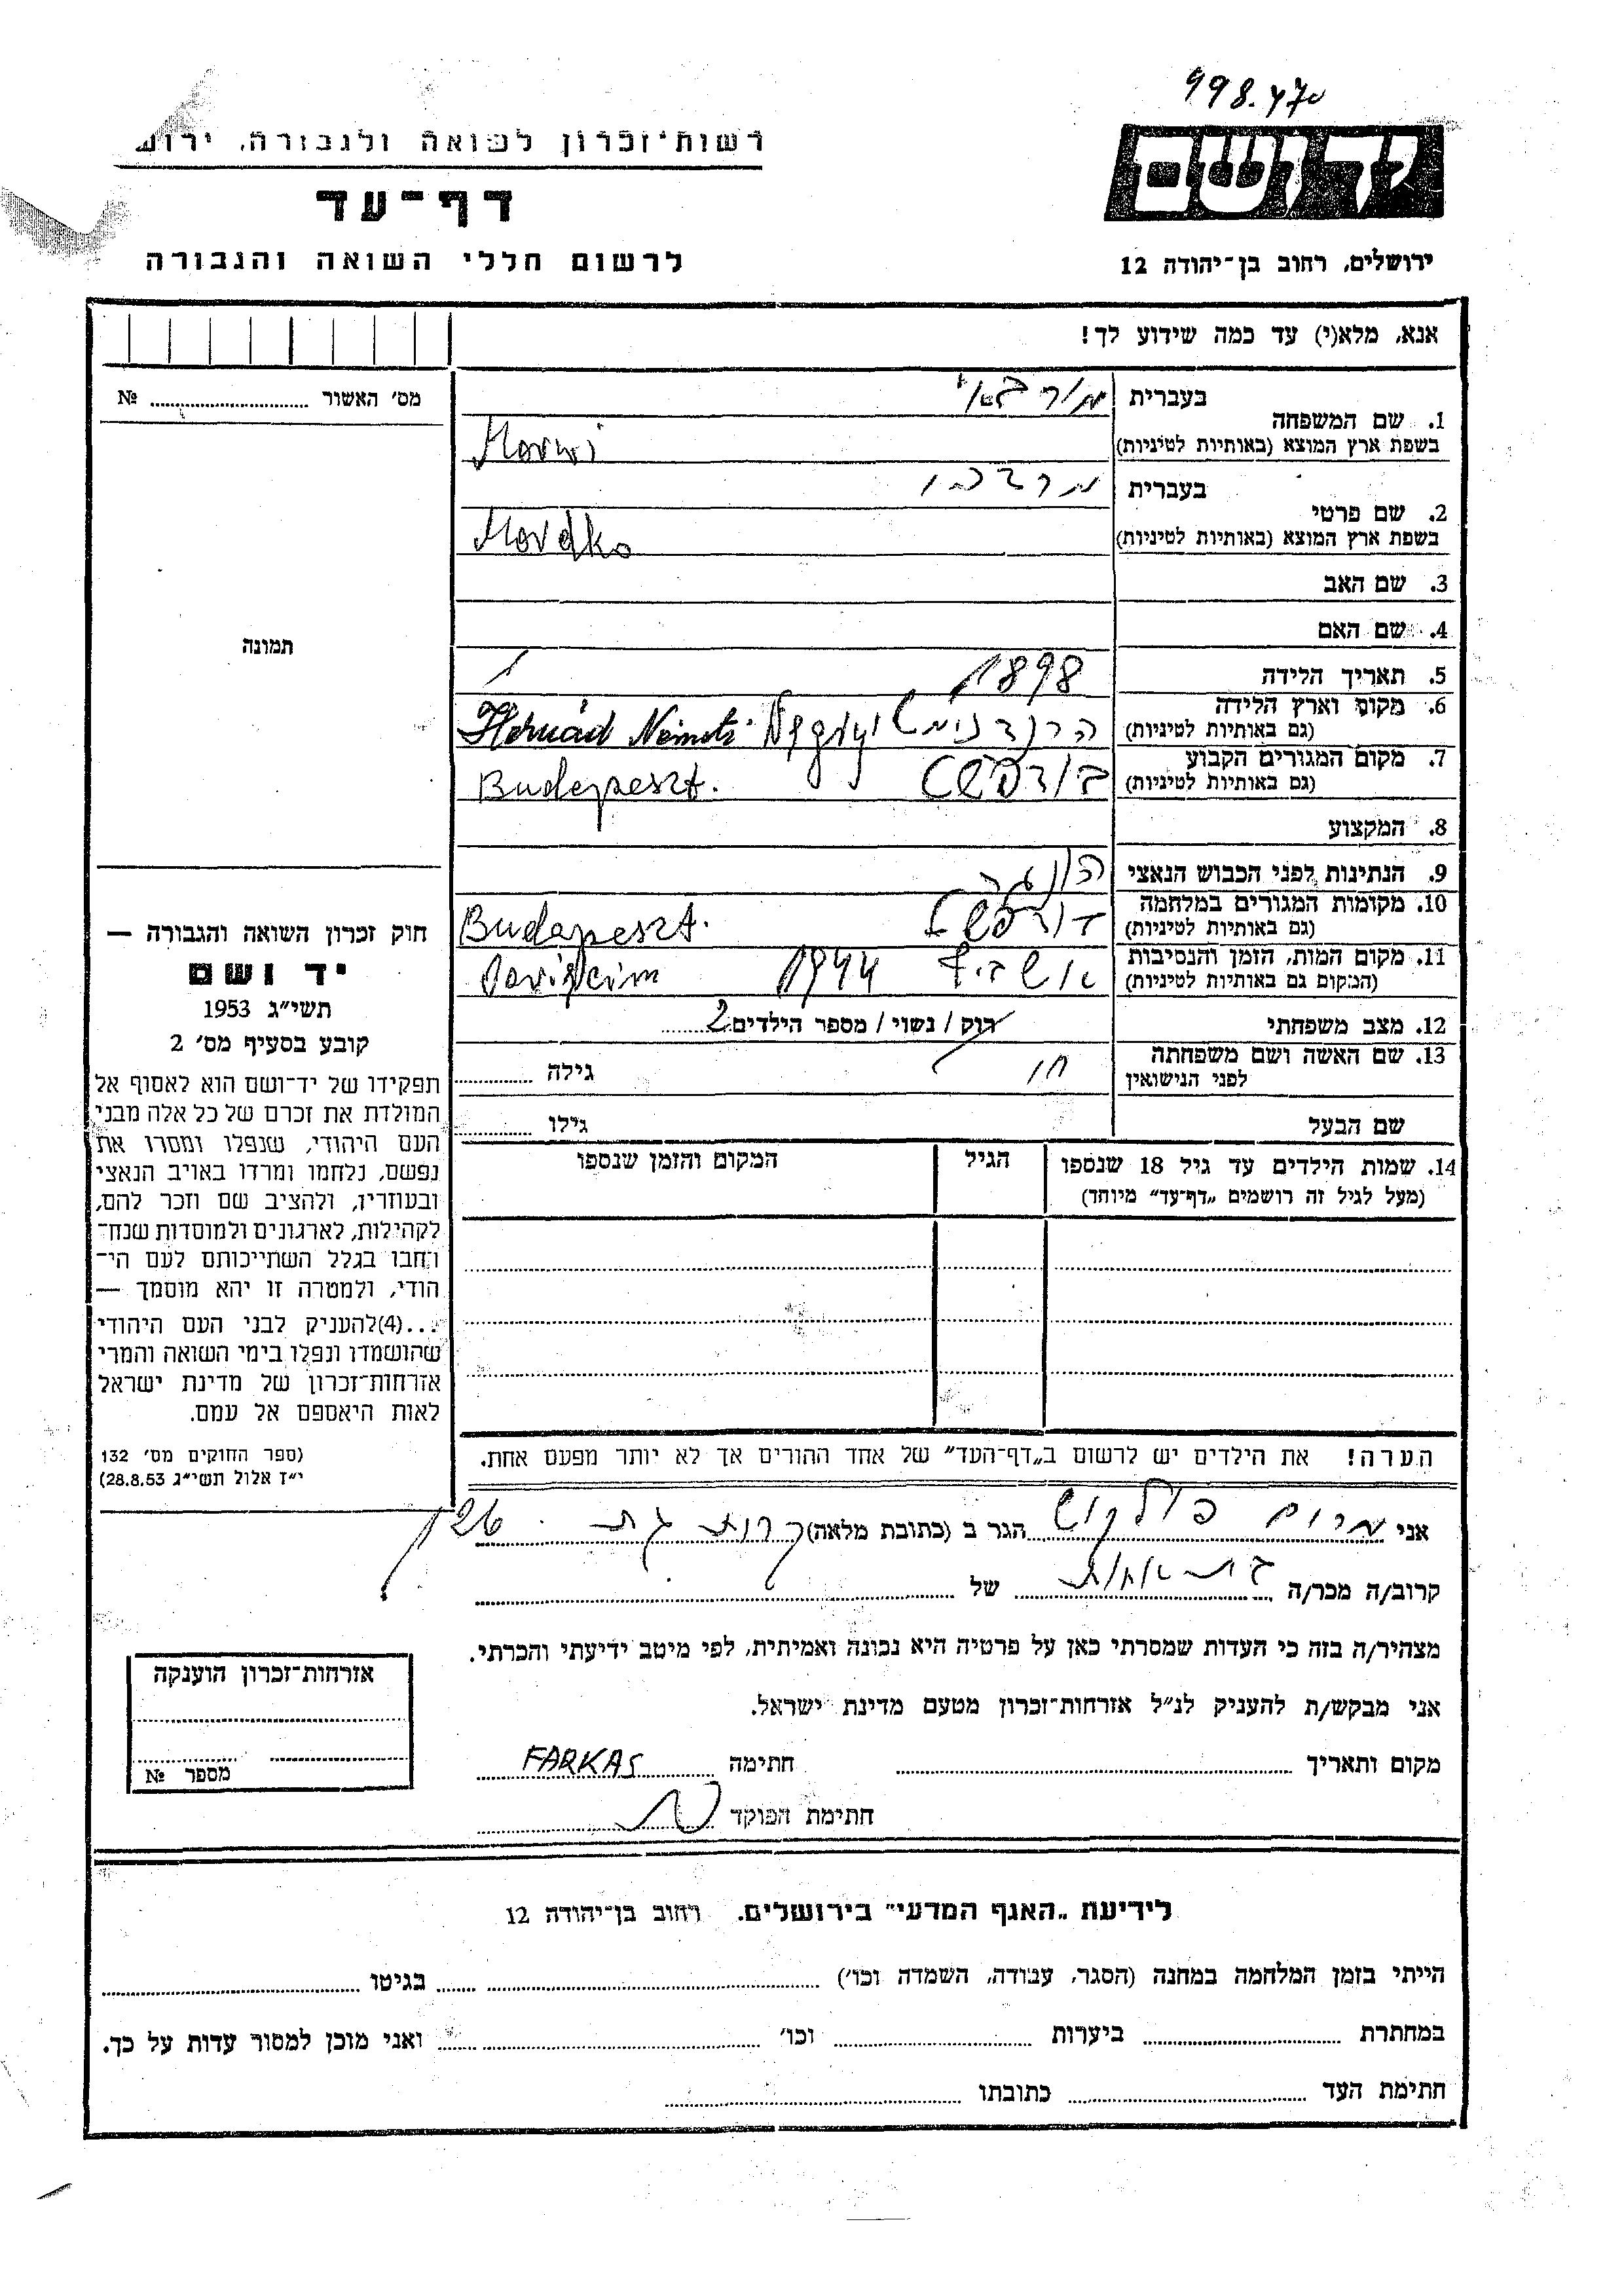 998.470
רשות־זכרון לשואה ולגבורה,
דף־עד
לרשום חללי השואה והגבורה
יד ושם
ירושלים, רחוב בן־יהודה 12
אנא, מלא(י) עד כמה שידוע לך!
מס׳ האשור № ..........
תמונה
1. שם המשפחה
בעברית
בשפת ארץ המוצא (באותיות לטיניות)
2. שם פרטי
בעברית מרדכי
בשפת ארץ המוצא (באותיות לטיניות) Mordko
3. שם האב
4. שם האם
5. תאריך הלידה 1898
6. מקום וארץ הלידה
(גם באותיות לטיניות) Hernád Németi
7. מקום המגורים הקבוע בודפשט
(גם באותיות לטיניות) Budapeszt.
8. המקצוע
9. הנתינות לפני הכבוש הנאצי
10. מקומות המגורים במלחמה
(גם באותיות לטיניות) Budapeszt.
11. מקום המות, הזמן והנסיבות 1944
(המקום גם באותיות לטיניות)
12. מצב משפחתי רוק / נשוי / מספר הילדים 2
13. שם האשה ושם משפחתה
לפני הנישואין גילה
שם הבעל גילו
14. שמות הילדים עד גיל 18 שנספו הגיל המקום והזמן שנספו
(מעל לגיל זה רושמים „דף־עד״ מיוחד)
הערה! את הילדים יש לרשום ב„דף־העד״ של אחד ההורים אך לא יותר מפעם אחת.
חוק זכרון השואה והגבורה —
יד ושם
תשי״ג 1953
קובע בסעיף מס׳ 2
תפקידו של יד־ושם הוא לאסוף אל
המולדת את זכרם של כל אלה מבני
העם היהודי, שנפלו ומסרו את
נפשם, נלחמו ומרדו באויב הנאצי
ובעוזריו, ולהציב שם וזכר להם,
לקהילות, לארגונים ולמוסדות שנח־
רבו בגלל השתייכותם לעם הי־
הודי, ולמטרה זו יהא מוסמך —
...(4)להעניק לבני העם היהודי
שהושמדו ונפלו בימי השואה והמרי
אזרחות־זכרון של מדינת ישראל
לאות היאספם אל עמם.
(ספר החוקים מס׳ 132
י״ז אלול תשי״ג 28.8.53)
אני מרים הגר ב (כתובת מלאה) קרית גת
קרוב/ה מכר/ה בת אחות של
מצהיר/ה בזה כי העדות שמסרתי כאן על פרטיה היא נכונה ואמיתית, לפי מיטב ידיעתי והכרתי.
אני מבקש/ת להעניק לנ״ל אזרחות־זכרון מטעם מדינת ישראל.
מקום ותאריך חתימה FARKAS
חתימת הפוקד
אזרחות־זכרון הוענקה
מספר №
לידיעת „האגף המדעי״ בירושלים. רחוב בן־יהודה 12
הייתי בזמן המלחמה במחנה (הסגר, עבודה, השמדה וכו׳) בגיטו
במחתרת ביערות וכו׳ ואני מוכן למסור עדות על כך.
חתימת העד כתובתו